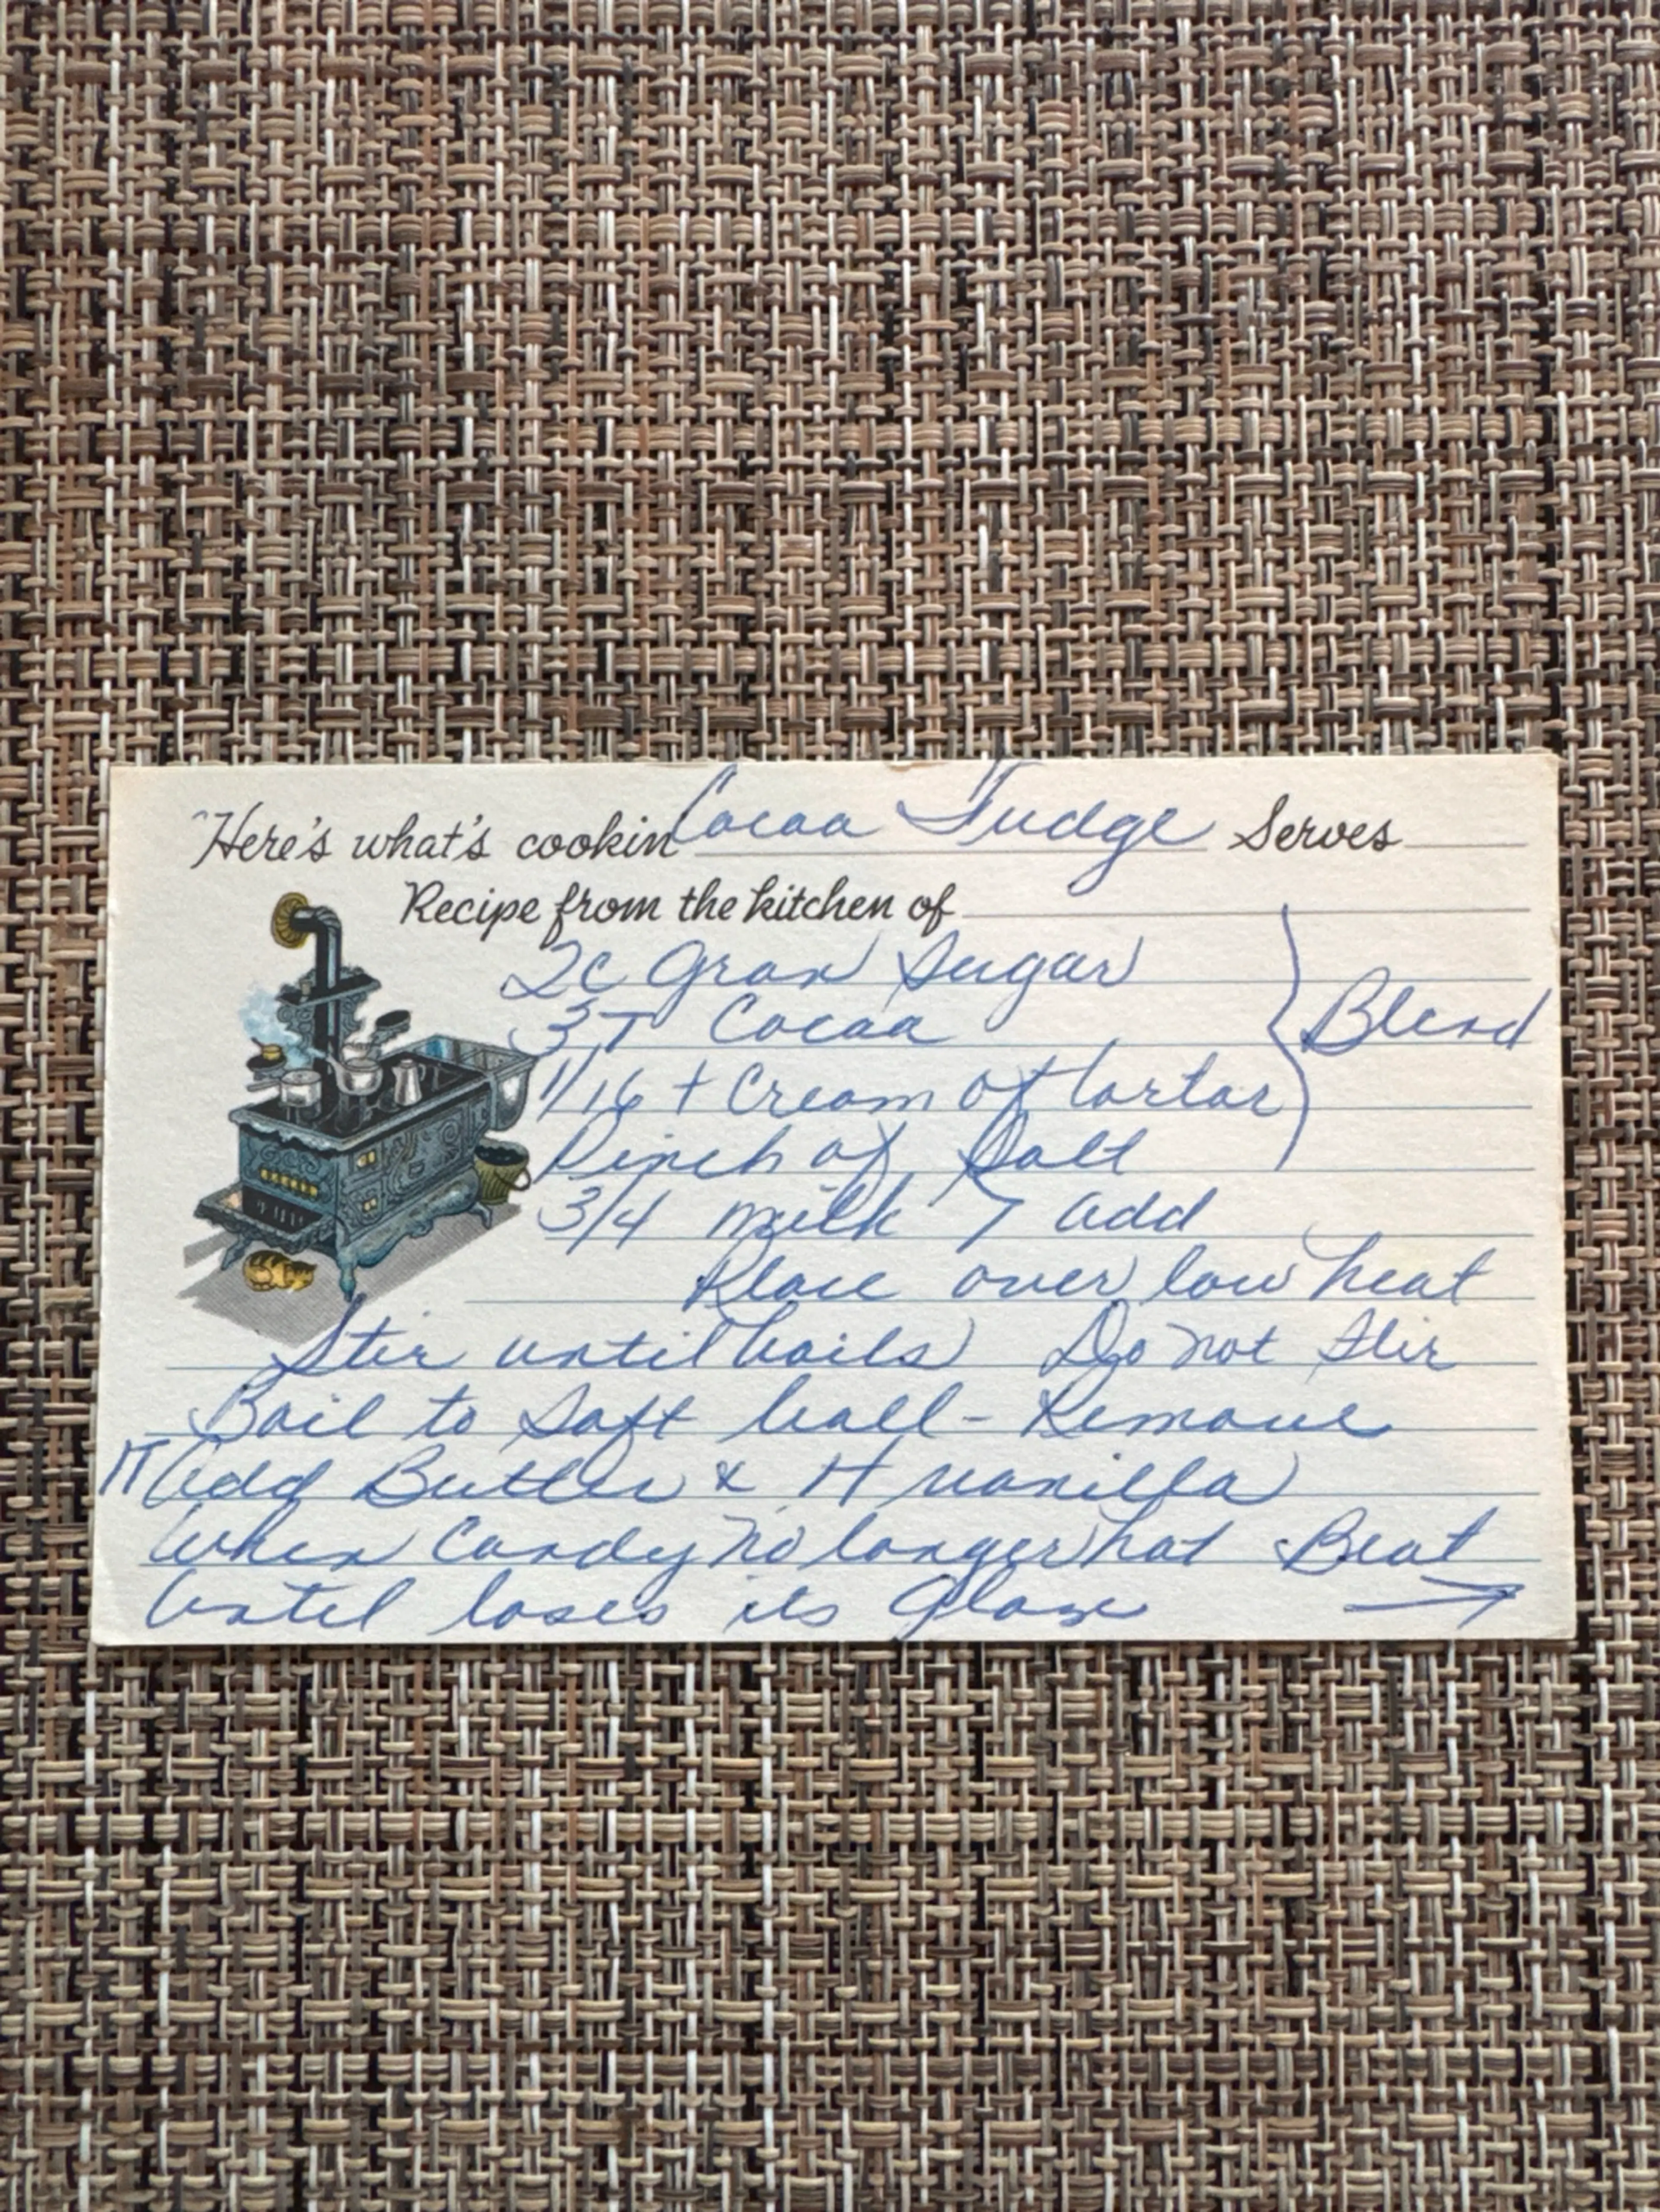 Here's what's cookin' Cocoa Fudge Serves
Recipe from the kitchen of
2c Gran Sugar
3T Cocoa } Blend
1/16 t Cream of tartar
Pinch of Salt
3/4 milk > add
Place over low heat
Stir until boils Do not Stir
Boil to Soft ball - Remove
1T Add Butter & 1t vanilla
When Candy no longer hot Beat
Until loses its Glaze →